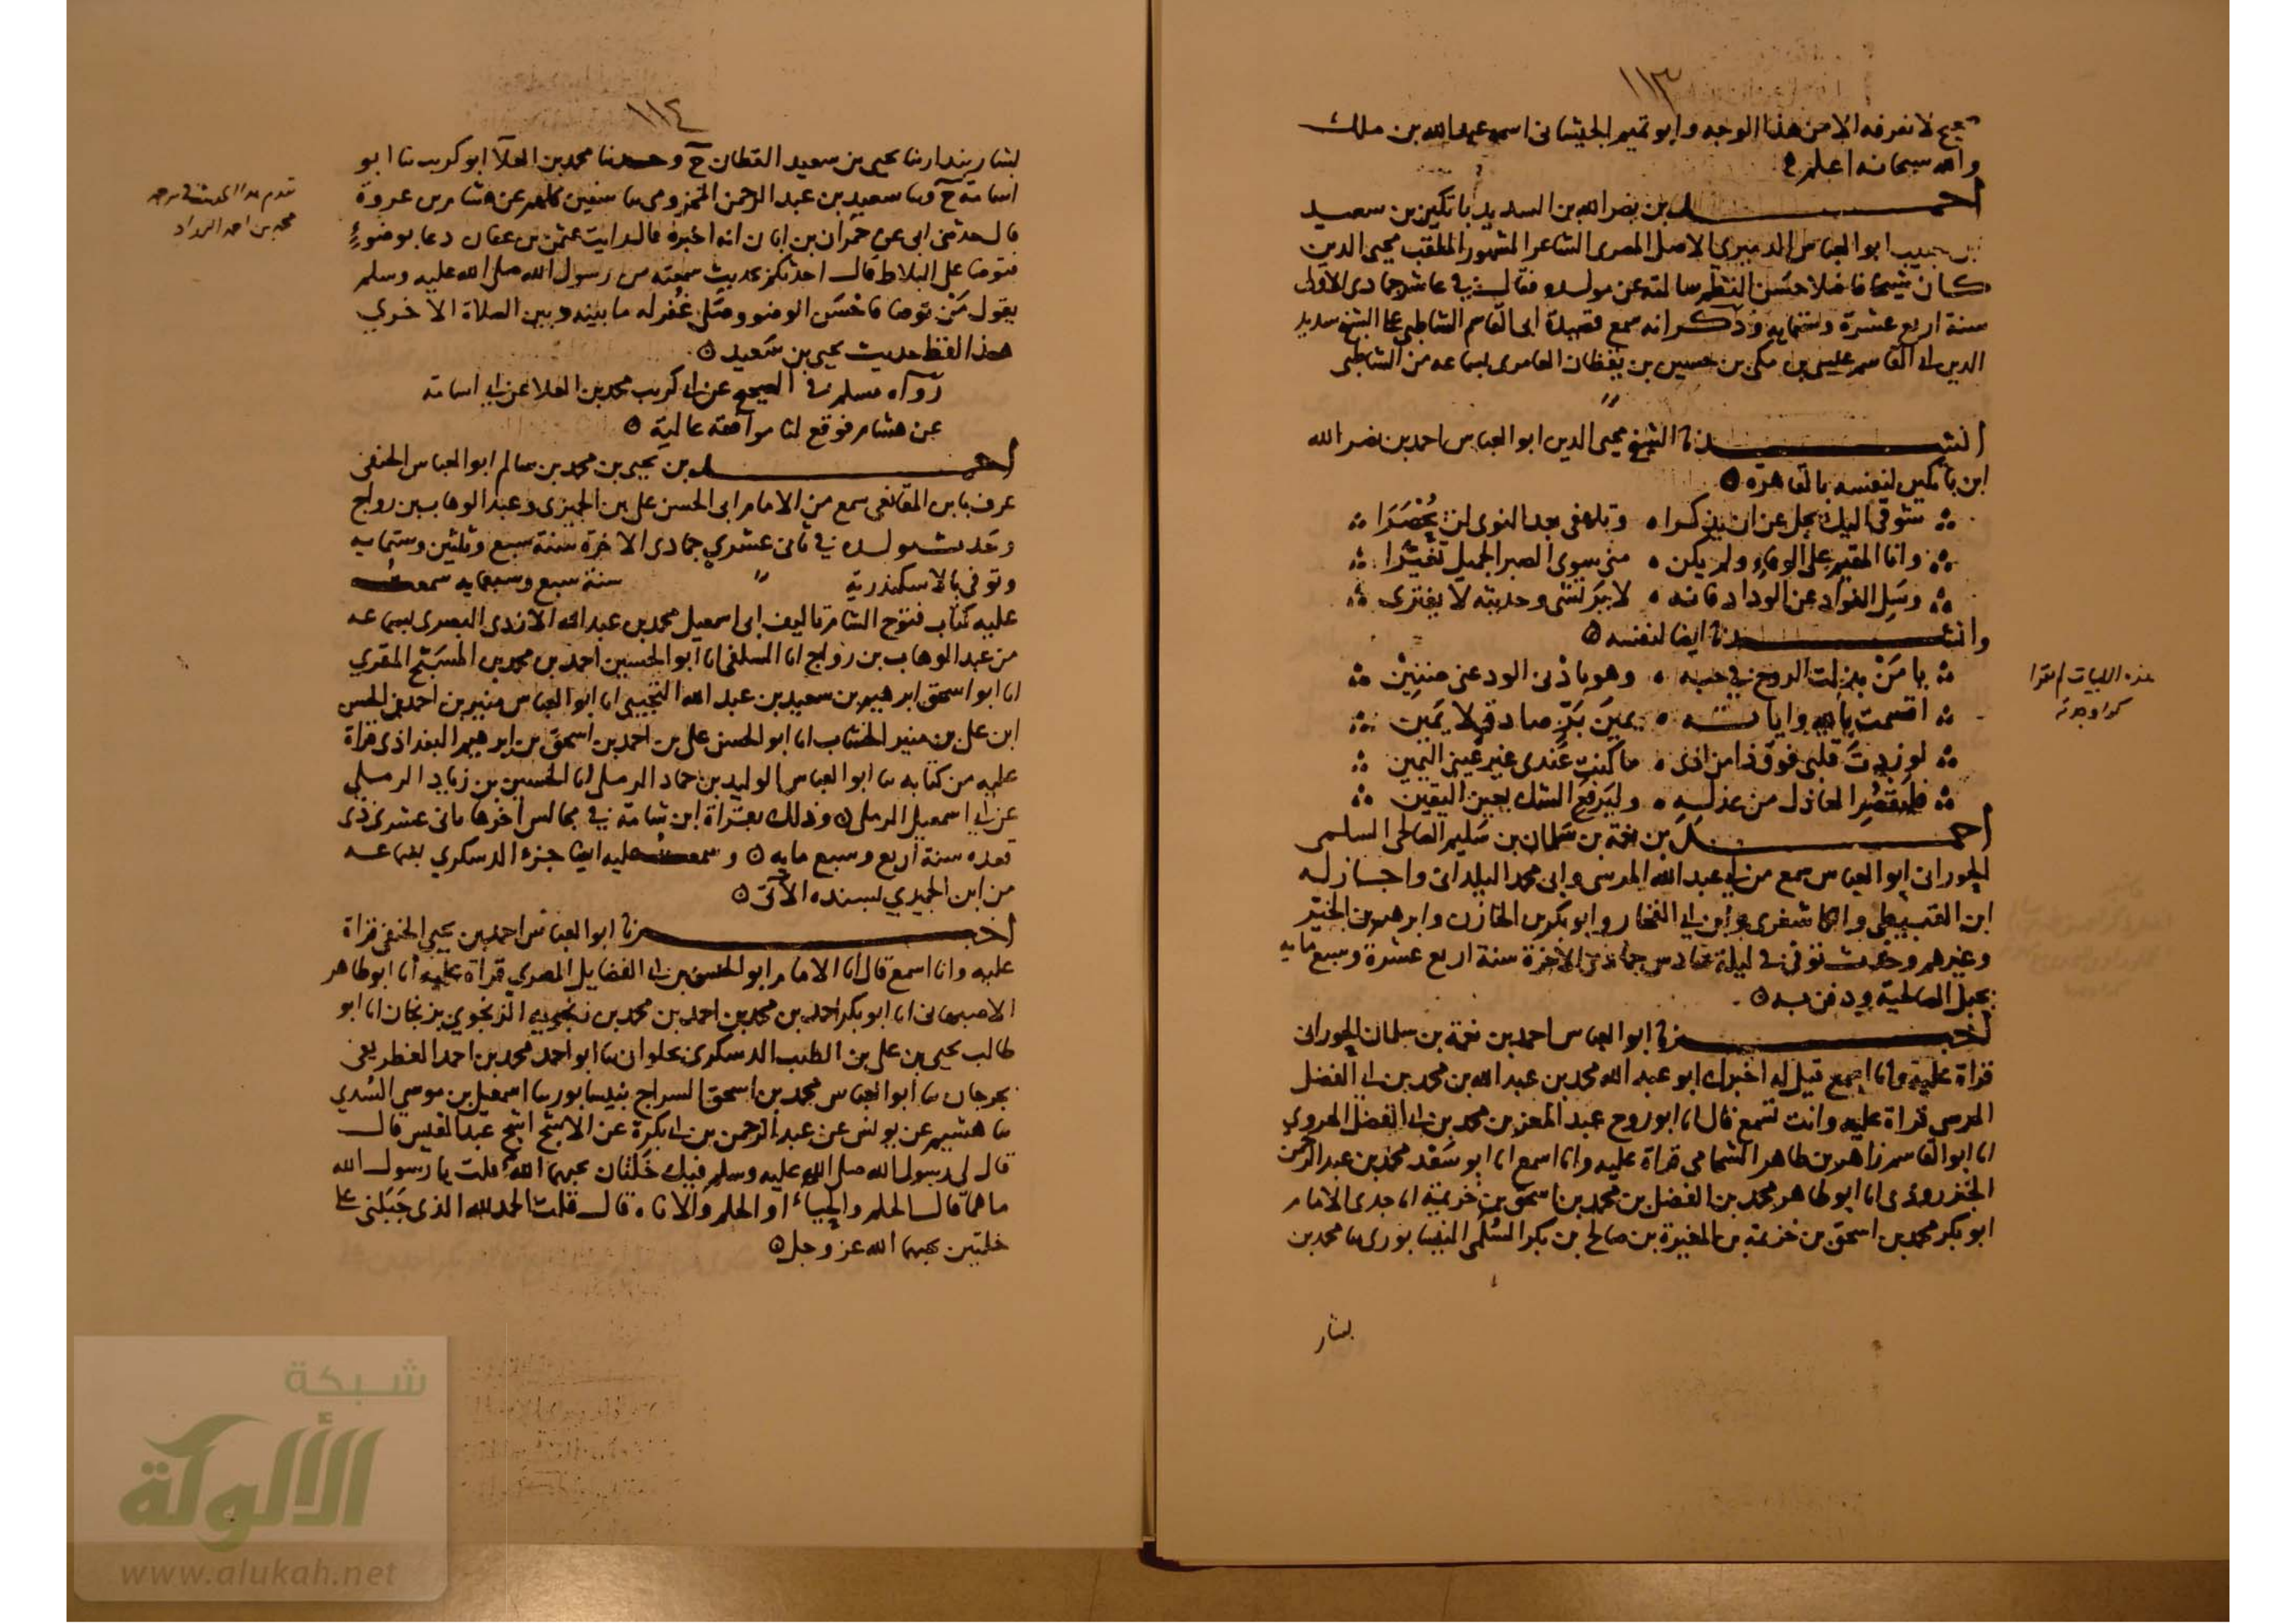 ١١٣
صحيح لا نعرفه الا من هذا الوجه وابو تميم الجيشاني اسمه عبد الله بن ملك
والله سبحانه اعلم
احمد بن نصر الله بن السديد باتكين بن سعيد
بن حبيب ابو العباس الدميري الاصل المصرى الشاعر المشهور الملقب محيى الدين
كان شيخا فاضلا حسن النظم سالته عن مولده فقال في عاشر جمادى الأولى
سنة اربع عشرة وستمايه وذكر انه سمع قصيدة ابى القاسم الشاطبى على الشيخ سديد
الدين ابى القاسم عيسى بن مكى بن حسين بن يقظان العامرى بسماعه من الشاطبى
انشدنا الشيخ محيى الدين ابو العباس احمد بن نصر الله
ابن باتكين لنفسه بالقاهرة
شوقى اليك يجل عن ان يذكرا وتلهفى بعد النوى لن يحصرا
وانا المقيم على الوفاء ولم يكن منى سوى الصبر الجميل تغيرا
وسل الفؤاد عن الوداد فانه لا يرتشى وحديثه لا يفترى
وانشدنا ايضا لنفسه
يا من بذلت الروح في حبه وهو باذنى الود عنى ضنين
اقسمت بالله واياته يمين بر صادق لا يمين
لو زدت قلبى فوق ذا من اذى ما كنت عندى غير عينى اليمين
فليقصر العاذل من عذله وليرفع الشك بعين اليقين
هذه الابيات لم تقرا
احمد بن نعمة بن سلمان بن سليم الصالحى السلمى
الحورانى ابو العباس سمع من ابى عبد الله المرسى وابى محمد البلدانى واجاز له
ابن القبيطى والكاشغرى وابن ابى الفخار وابو بكر بن الخازن وابرهيم بن الخير
وغيرهم وحدث توفى في ليلة سادس جمادى الآخرة سنة اربع عشرة وسبع مايه
بجبل الصالحية ودفن به
اخبرنا ابو العباس احمد بن نعمة بن سلمان الحورانى
قراة عليه وانا اسمع قيل له اخبرك ابو عبد الله محمد بن عبد الله بن محمد بن ابى الفضل
المرسى قراة عليه وانت تسمع قال انا ابو روح عبد المعز بن محمد بن ابى الفضل الهروي
انا ابو القاسم زاهر بن طاهر الشحامى قراة عليه وانا اسمع انا ابو سعد محمد بن عبد الرحمن
الجنزروذى انا ابو طاهر محمد بن الفضل بن محمد بن اسحق بن خزيمة انا جدى الامام
ابو بكر محمد بن اسحق بن خزيمة بن المغيرة بن صالح بن بكر السلمى النيسابورى نا محمد بن
بشار
١١٤
بشار بندار نا يحيى بن سعيد القطان ح وحدثنا محمد بن العلآ ابو كريب نا ابو
اسامة ح ونا سعيد بن عبد الرحمن المخزومى نا سفين كلهم عن هشام بن عروة
قال حدثنى ابى عن حمران بن ابان انه اخبره قال رايت عثمن بن عفان دعا بوضوء
فتوضا على البلاط قال احدثكم بحديث سمعته من رسول الله صلى الله عليه وسلم
يقول من توضا فاحسن الوضو وصلى غفر له ما بينه وبين الصلاة الاخرى
هذا لفظ حديث يحيى بن سعيد
رواه مسلم في الصحيح عن ابى كريب محمد بن العلا عن ابى اسامة
عن هشام فوقع لنا موافقة عالية
تقدم هذا الحديث في ترجمة
محمد بن احمد
احمد بن يحيى بن محمد بن سالم ابو العباس الحنفى
عرف بابن المقانعى سمع من الامام ابى الحسن على بن الجميزى وعبد الوهاب بن رواج
وحدث مولده في ثانى عشري جمادى الاخرة سنة سبع وثلثين وستمايه
وتوفى بالاسكندرية سنة سبع وسبعمايه سمعت
عليه كتاب فتوح الشام تاليف ابى اسمعيل محمد بن عبد الله الازدى البصرى بسماعه
من عبد الوهاب بن رواج انا السلفى انا ابو الحسين احمد بن محمد بن المسبح المقري
انا ابو اسحق ابرهيم بن سعيد بن عبد الله التجيبى انا ابو العباس منير بن احمد بن الحسن
ابن على بن منير الخشاب انا ابو الحسن على بن احمد بن اسحق بن ابرهيم البغداذى قراة
عليه من كتابه نا ابو العباس الوليد بن حماد الرملى انا الحسين بن زياد الرملى
عن ابى اسمعيل الرملى وذلك بقراة ابن شامة في مجالس اخرها ثانى عشرى ذى
قعده سنة اربع وسبع مايه وسمعت عليه ايضا جزء الدسكري بسماعه
من ابن الجميزي بسنده الآتى
اخبرنا ابو العباس احمد بن يحيى الحنفى قراة
عليه وانا اسمع قال انا الامام ابو الحسن بن ابى الفضايل المصري قراة عليه انا ابو طاهر
الاصبهانى انا ابو بكر احمد بن محمد بن احمد بن محمد بن زنجويه الزنجوي بزنجان انا ابو
طالب يحيى بن على بن الطيب الدسكرى بحلوان نا ابو احمد محمد بن احمد الغطريفى
بجرجان نا ابو العباس محمد بن اسحق السراج بنيسابور نا اسمعيل بن موسى السدي
نا هشيم عن يونس عن عبد الرحمن بن ابى بكرة عن الاشج اشج عبد القيس قال
قال لى رسول الله صلى الله عليه وسلم فيك خلتان يحبهما الله قلت يا رسول الله
ما هما قال الحلم والحياء او الحلم والاناه قال قلت الحمد لله الذى جبلنى على
خلتين يحبهما الله عز وجل
شبكة
الألوكة
www.alukah.net